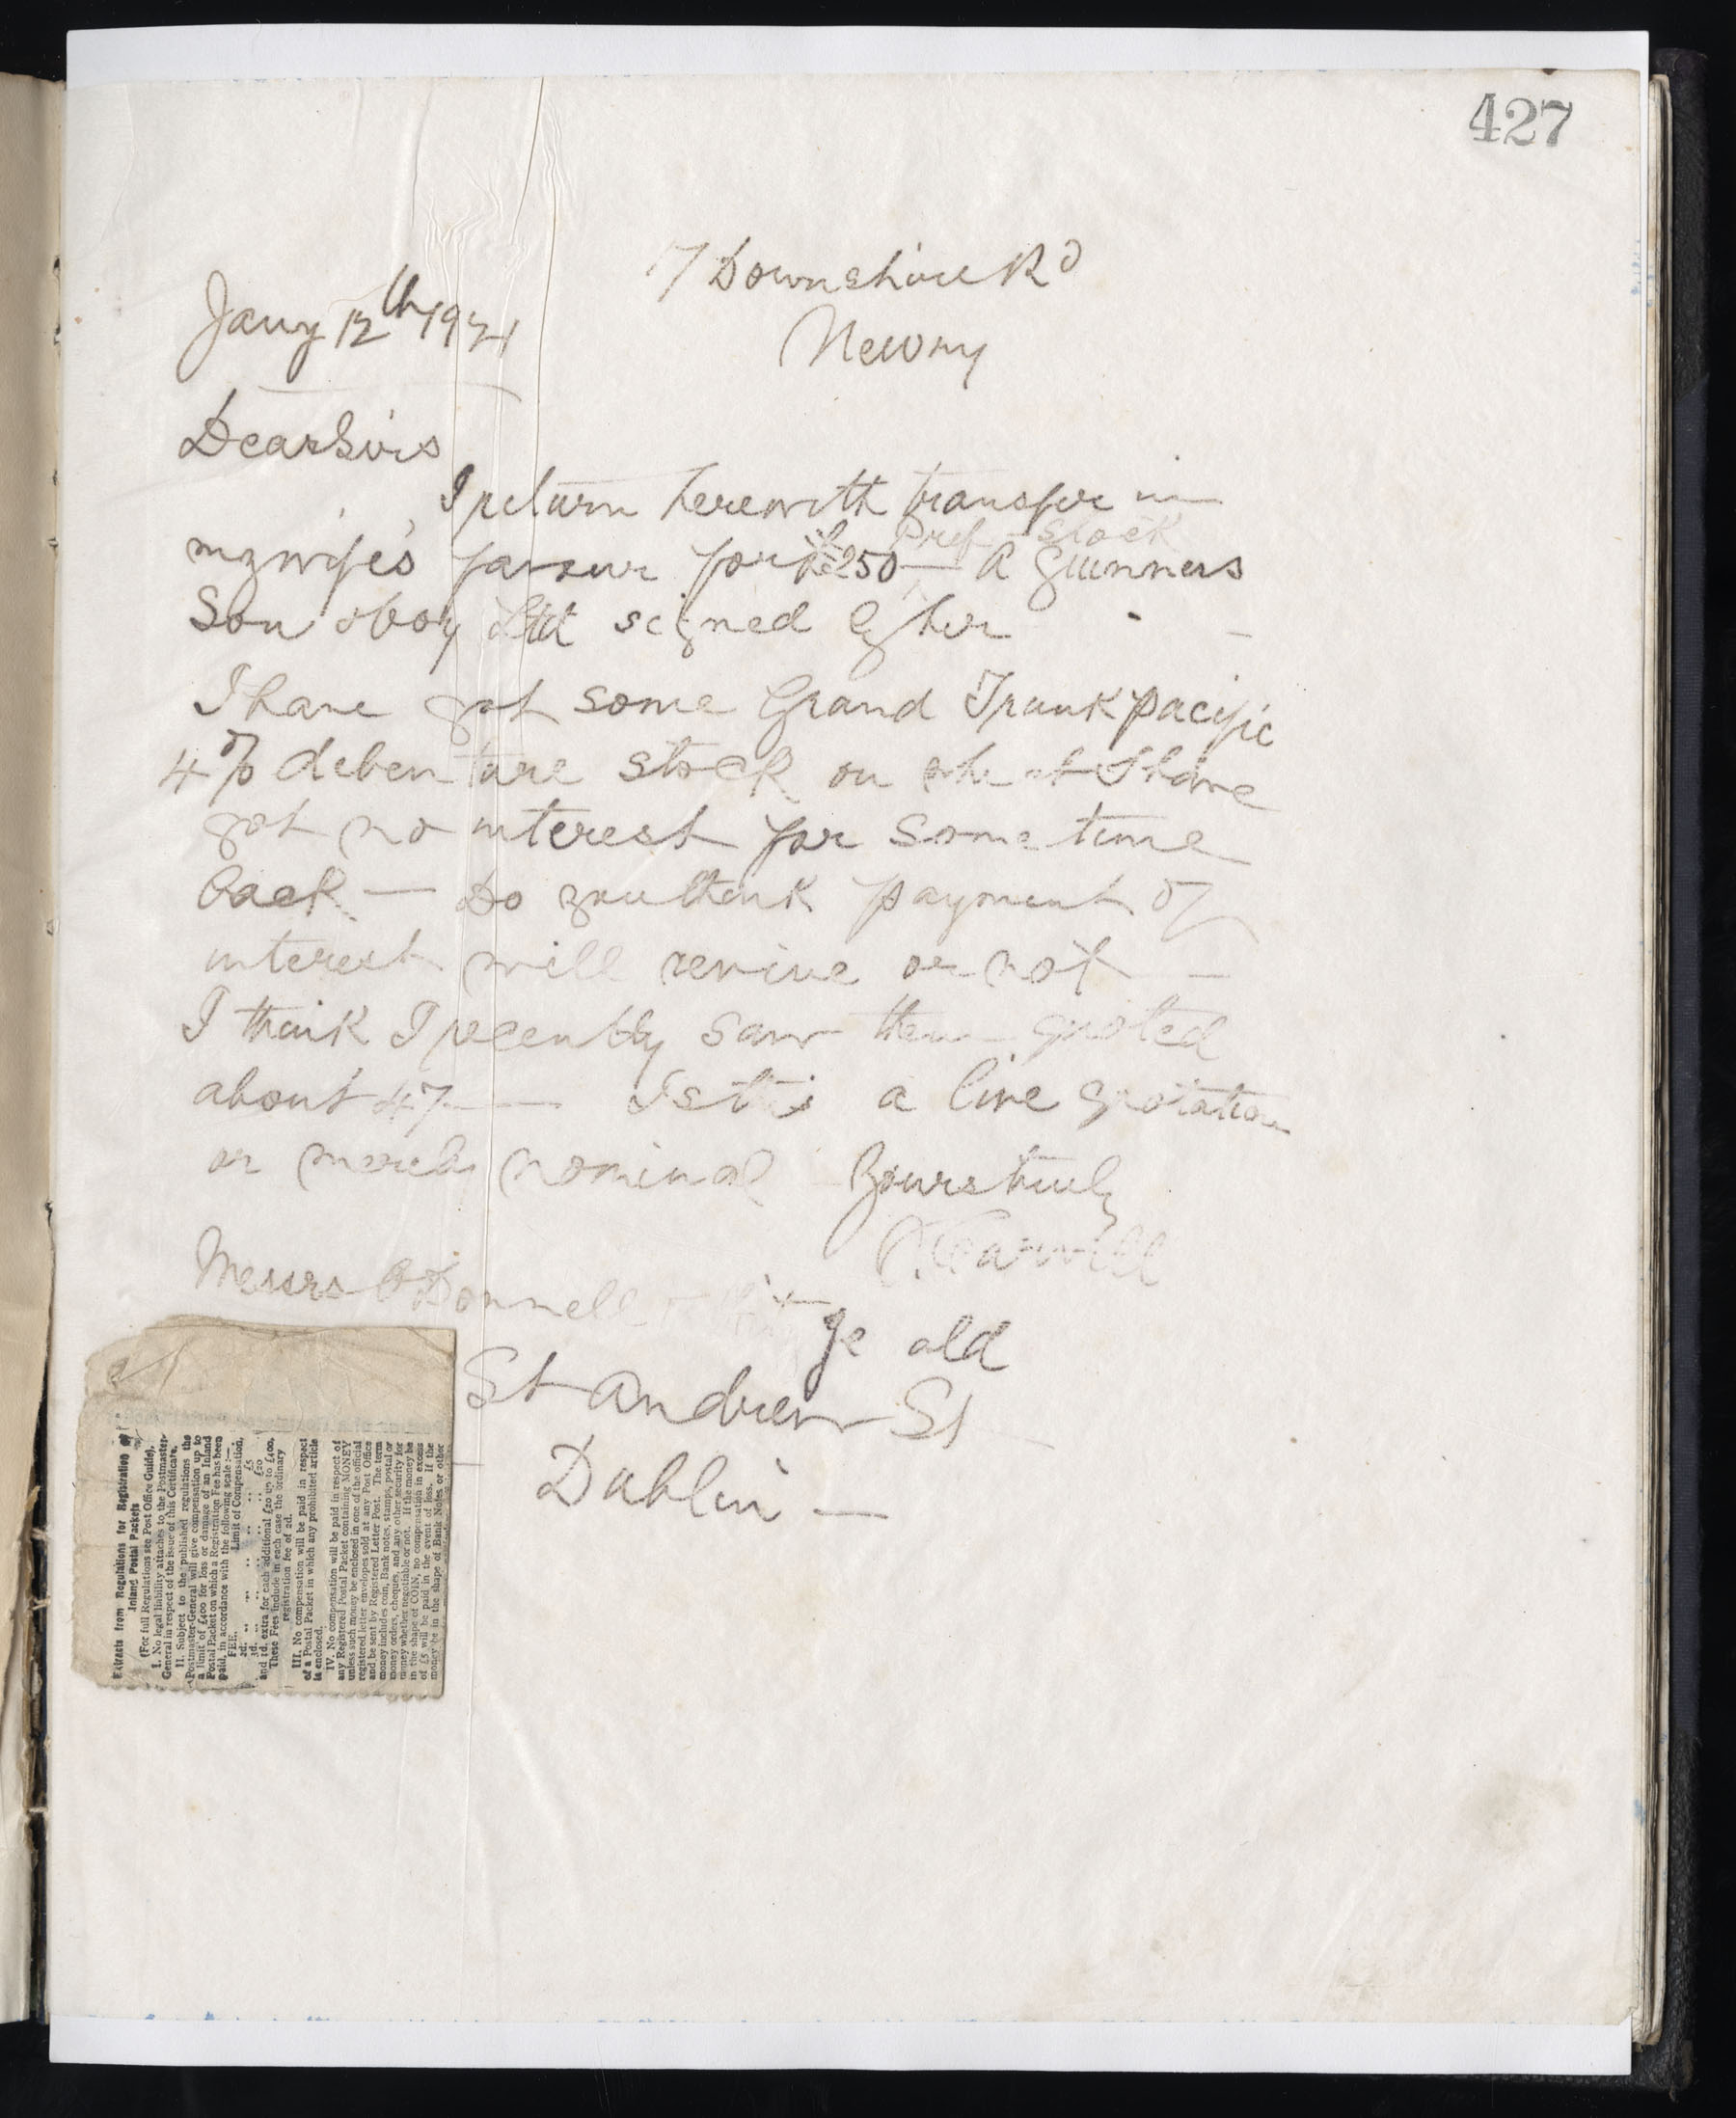 427
7 Downshire Rd
Newry
Jany 12th 1921
Dear Sirs
I return herewith transfer in
my wife's favour for the £250 Pref Stock A Guinness
Son & Coy Ltd signed by her
I have got some Grand Trunk pacific
4% debenture stock on what I have
got no interest for some time
back — Do you think payment of
interest will revive or not —
I think I recently saw them quoted
about 47 — Is this a live quotation
or merely nominal Yours truly
Messrs O'Donnell
ge old
St Andrew St
Dublin —
Extracts from Regulations for Registration of
Inland Postal Packets
(For full Regulations see Post Office Guide).
I. No legal liability attaches to the Postmaster-
General in respect of the issue of this Certificate.
II. Subject to the published regulations the
Postmaster-General will give compensation up to
a limit of £400 for loss or damage of an Inland
Postal Packet on which a Registration Fee has been
paid, in accordance with the following scale:—
FEE. Limit of Compensation.
2d. .. .. .. .. £5
3d. .. .. .. .. £20
and 1d. extra for each additional £20 up to £400.
These Fees include in each case the ordinary
registration fee of 2d.
III. No compensation will be paid in respect
of a Postal Packet in which any prohibited article
is enclosed.
IV. No compensation will be paid in respect of
any Registered Postal Packet containing MONEY
unless such money be enclosed in one of the official
registered letter envelopes sold at any Post Office
and be sent by Registered Letter Post. The term
money includes coin, Bank notes, stamps, postal or
money orders, cheques, and any other security for
money whether negotiable or not. If the money be
in the shape of COIN, no compensation in excess
of £5 will be paid in the event of loss. If the
money be in the shape of Bank Notes or other